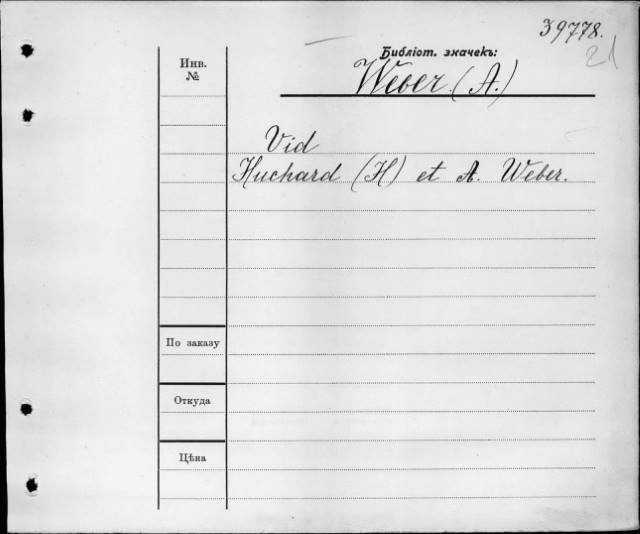 39778.
21
Библіот. значекъ:
Инв.
№
Weber (A.)
Vid
Huchard (H) et A. Weber.
По заказу
Откуда
Цѣна